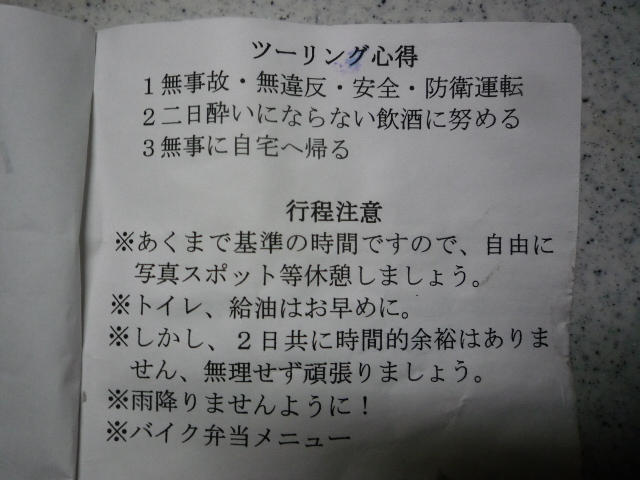 ツーリング心得
1無事故・無違反・安全・防衛運転
2二日酔いにならない飲酒に努める
3無事に自宅へ帰る
行程注意
※あくまで基準の時間ですので、自由に
写真スポット等休憩しましょう。
※トイレ、給油はお早めに。
※しかし、２日共に時間的余裕はありま
せん、無理せず頑張りましょう。
※雨降りませんように！
※バイク弁当メニュー